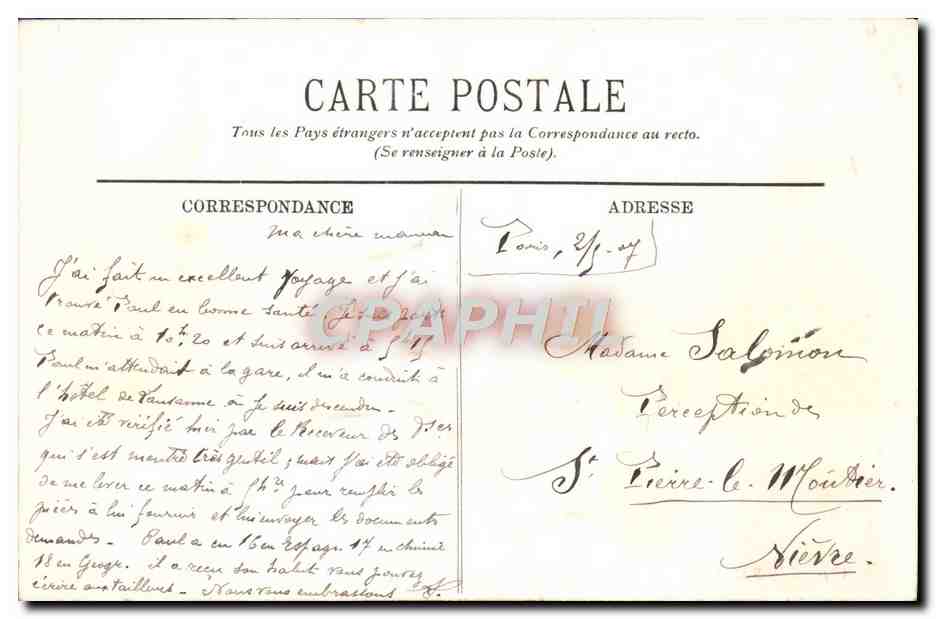 CARTE POSTALE
Tous les Pays étrangers n'acceptent pas la Correspondance au recto.
(Se renseigner à la Poste).
CORRESPONDANCE
Ma chère maman
J'ai fait un excellent voyage et j'ai
trouvé Paul en bonne santé. Je
ce matin à 10h,20 et suis arrivé à 5h15
Paul m'attendait à la gare, il m'a conduit à
l'hôtel de Lausanne où je suis descendu -
J'ai été vérifié hier par le Receveur des
qui s'est montré très gentil ; mais j'ai été obligé
de me lever ce matin à 5h pour remplir les
pièces à lui fournir et lui envoyer les documents
demandés - Paul a eu 16 en Espagn. 17 en chimie
18 en Géogr. il a reçu son habit vous pouvez
écrire aux tailleurs - Nous vous embrassons
ADRESSE
Paris, 2/5-07
Madame Salomon
Perception de
St Pierre-le-Moûtier.
Nièvre.
CPAPHIL